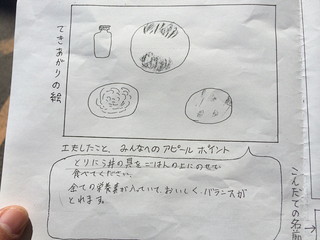 できあがりの絵
工夫したこと、みんなへのアピールポイント
とりにら丼の具をごはんの上にのせて
食べてください。
全ての栄養素が入っていて、おいしく、バランスが
とれます。
こんだての名前